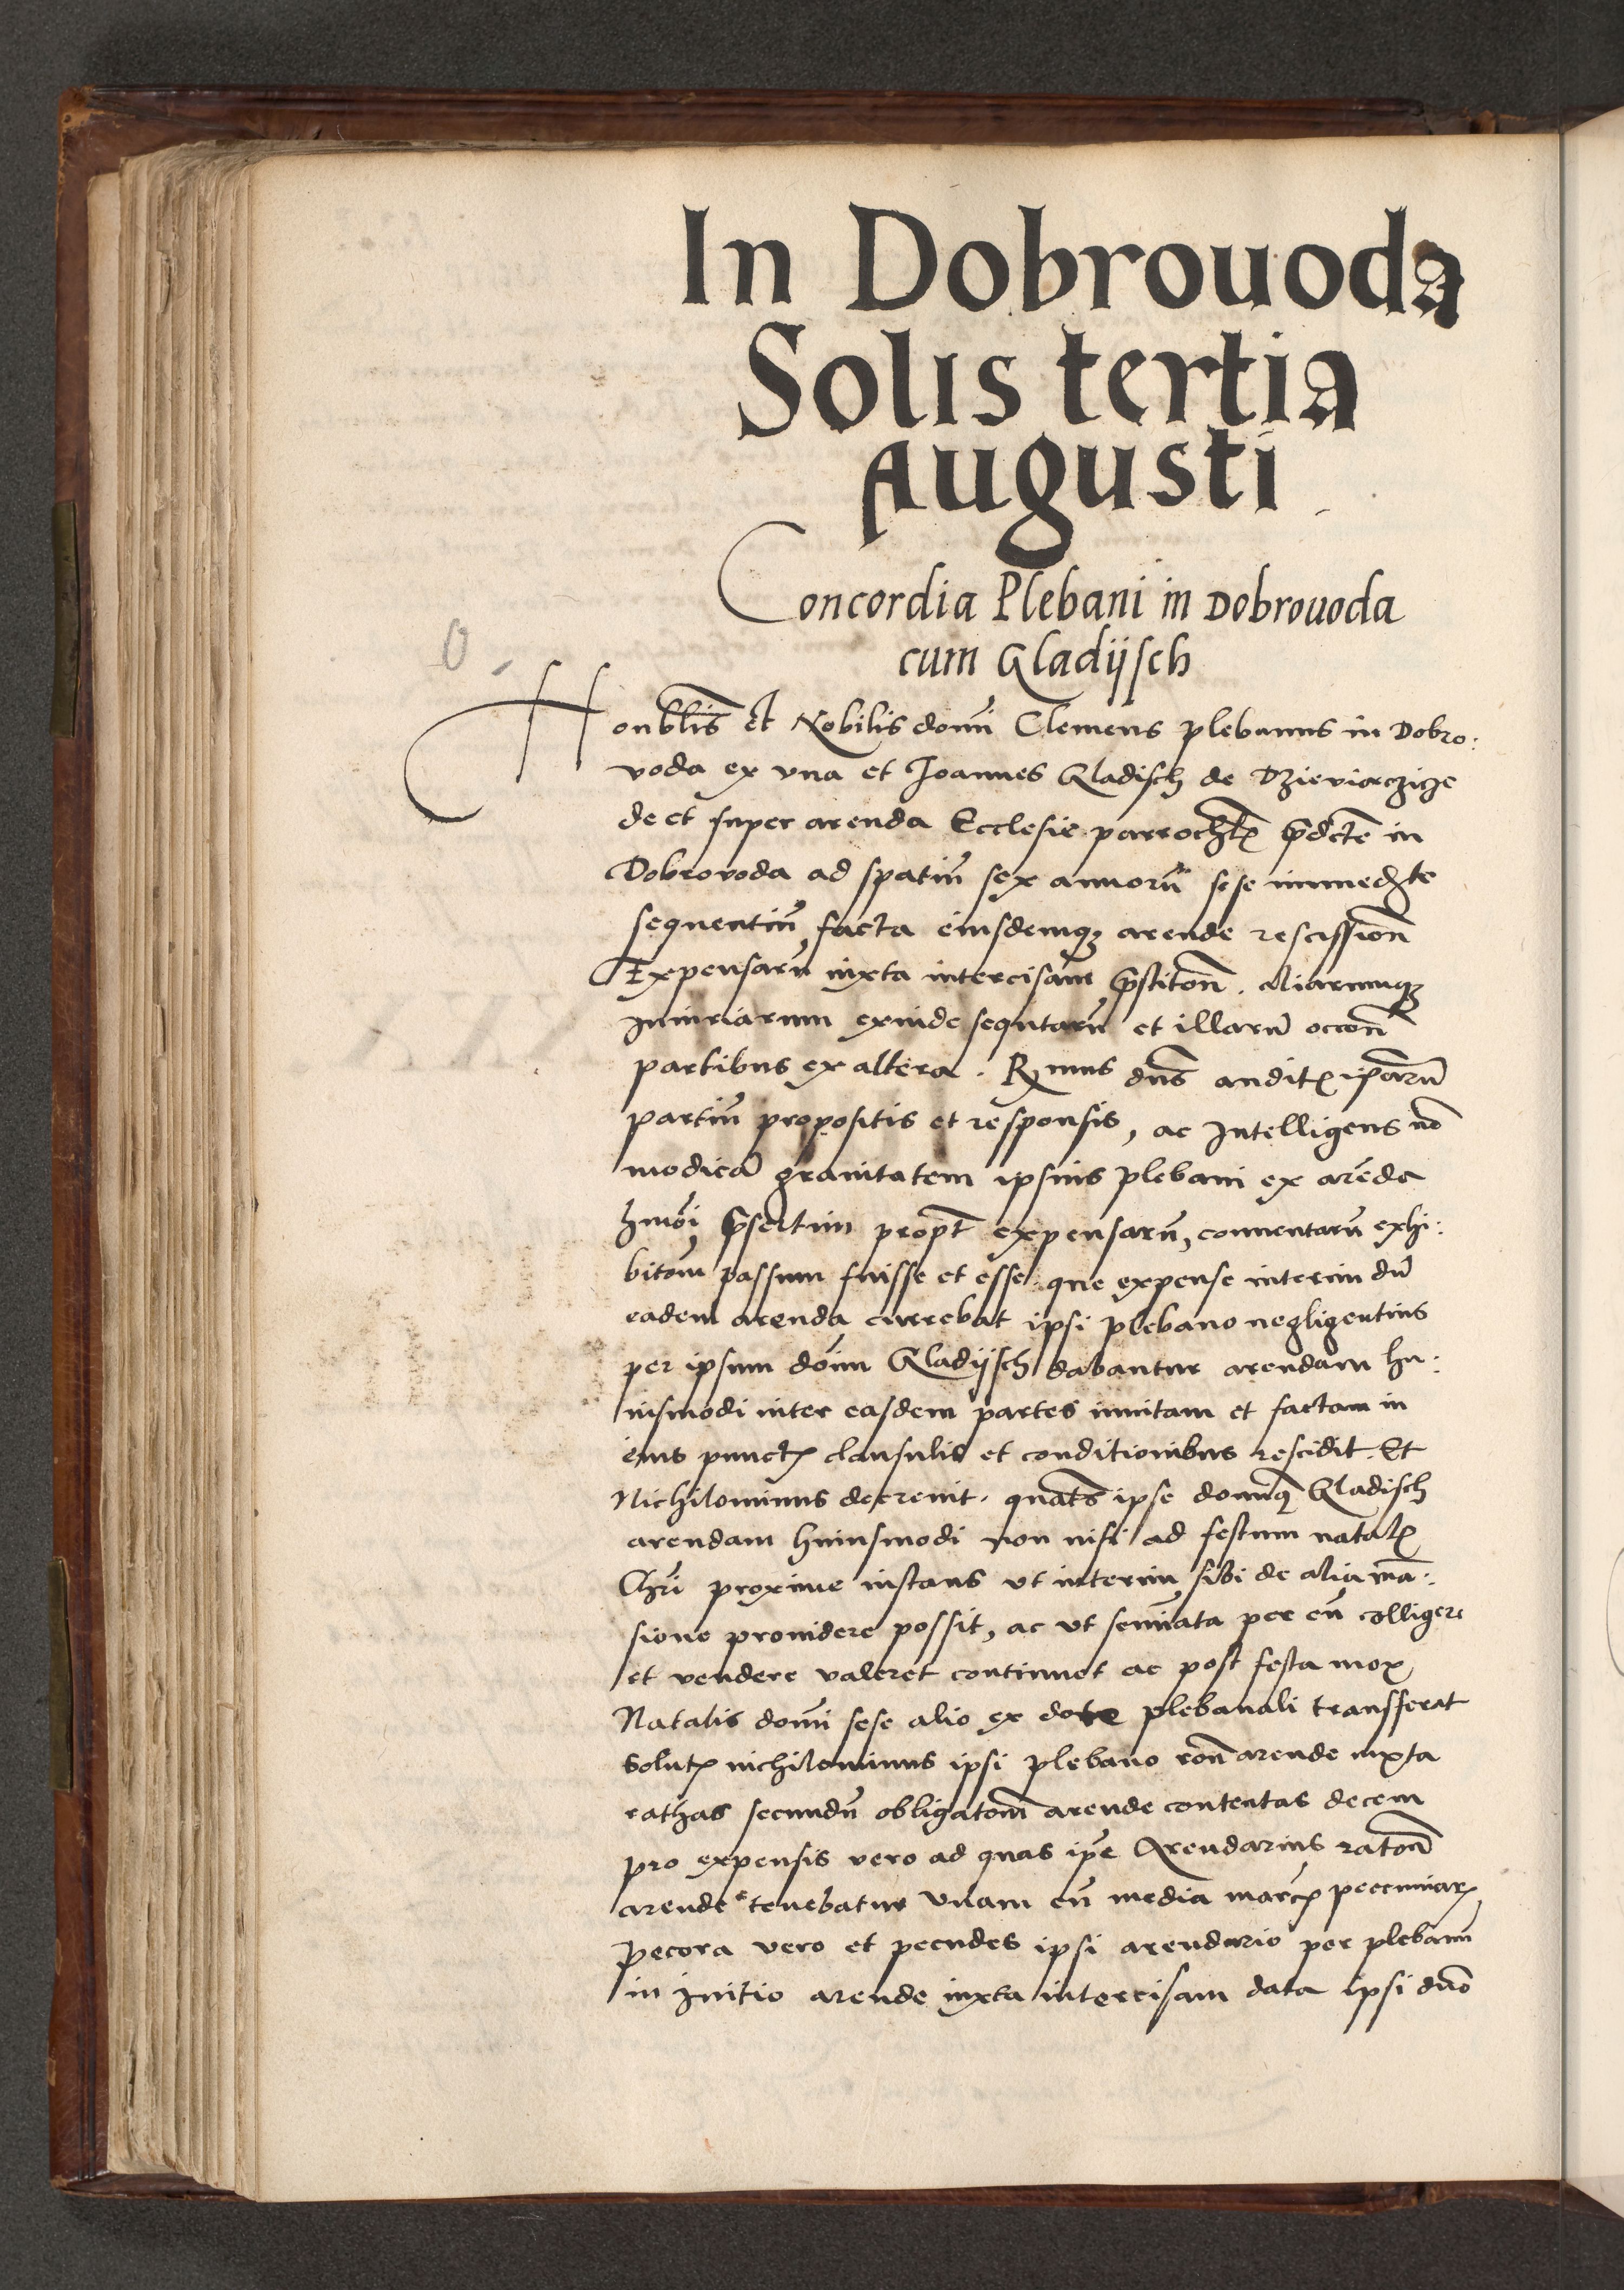 In Dobrouoda
Solis tertia
Augusti
Concordia Plebani in Dobrouoda
cum Gladijsch
Honblis et Nobilis domi Clemens plebanus in Dobro:
voda ex vna et Joannes Gladisch de Dzieviaczicze
de et super arenda Ecclesie parrochtis pdcte in
Dobrovoda ad spatiu sex annoru sese immedte
sequentiu facta eiusdemq arende rescission
Expensaru iuxta intercisam pstiton. aliarumq
Iniuriarum exinde sequtaru et illaru occon
partibus ex altera. Rmus dns auditis iparu
partiu propositis et responsis, ac Intelligens no
modica grauitatem ipsius plebani ex arenda
hmoi psertim propt expensaru, conuentaru exhi:
bitom passum fuisse et esse que expense interim du
eadem arenda currebat ipsi plebano negligentius
per ipsum dom Gladijsch dabantur arendam hu:
iusmodi inter easdem partes initam et factam in
eius punctis clausulis et conditionibus rescidit. Et
Nichilominus decreuit. quats ipse domnq Gladisch
arendam huiusmodi non nisi ad festum natalis
Chri proxime instans ut interim sibi de alia ma:
sione prouidere possit, ac ut seminata per eu colligere
et vendere valeret continuet ac post festa mox
Natalis domi sese alio ex dote plebanali transferat
solutis nichilominus ipsi plebano ron arende iuxta
rathas secundu obligatom arende contentas decem
pro expensis vero ad quas ipe Arendarius raton
arende tenebatur Vnam cu media marcis pecuniar
Pecora vero et pecudes ipsi arendario per plebanu
in Initio arende iuxta intercisam data ipsi dno